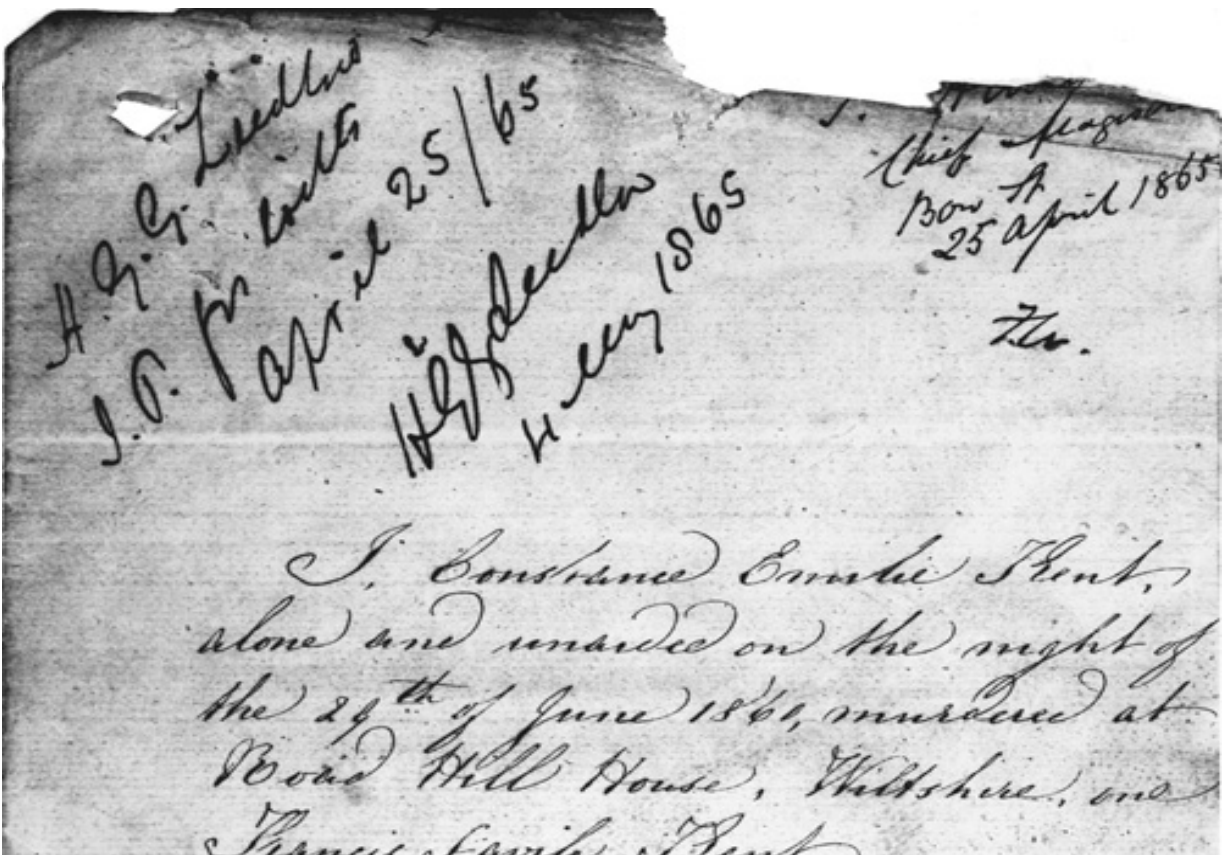 H. G. G. Ludlow
J. P. for Wilts
April 25/65
HGGLudlow
4 May 1865
Chief Magis
Bow St
25 April 1865
I, Constance Emilie Kent,
alone and unaided on the night of
the 29th of June 1860, murdered at
Road Hill House, Wiltshire, one
Francis Savile Kent